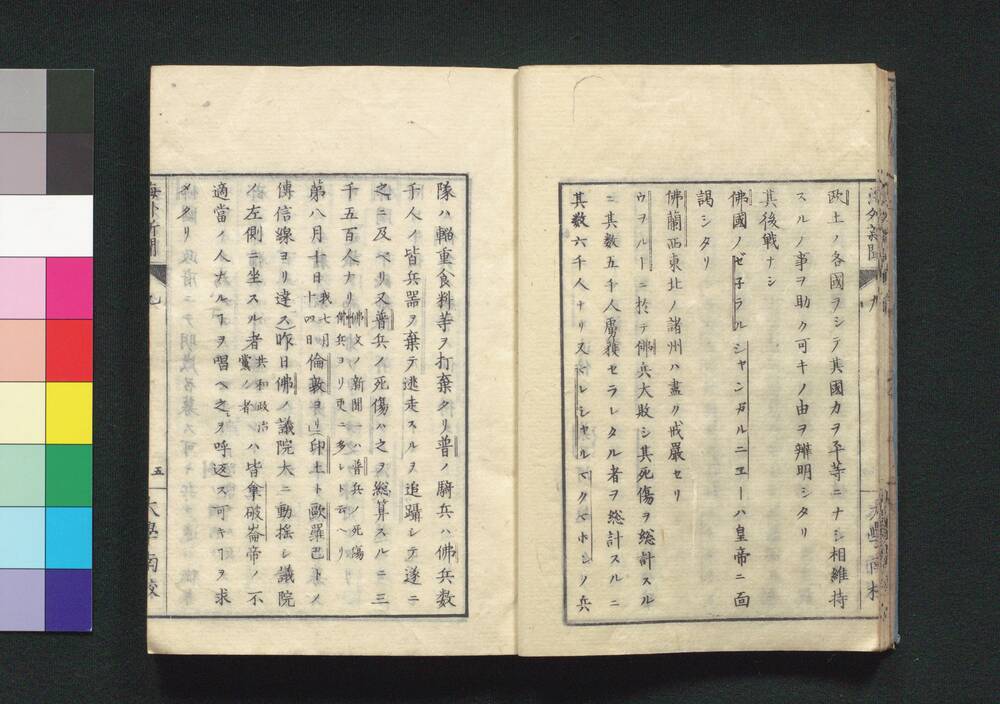 歐土ノ各國ヲシテ其國力ヲ平等ニナシ相維持
スルノ事ヲ助ク可キノ由ヲ辨明シタリ
其後戰ナシ
佛國ノゼ子ラルシャンガルニヱーハ皇帝ニ面
謁シタリ
佛蘭西東北ノ諸州ハ盡ク戒嚴セリ
ウヲルトニ於テ佛兵大敗シ其死傷ヲ総計スル
ニ其数五千人虜獲セラレタル者ヲ総計スルニ
其数六千人ナリ又マレシャルマクマホンノ兵
隊ハ輜重食料等ヲ打棄タリ普ノ騎兵ハ佛兵数
千人ノ皆兵器ヲ棄テ逃走スルヲ追躡シテ遂ニ
之ニ及ベリ又普兵ノ死傷ハ之ヲ総算スルニ三
千五百人ナリ佛文ノ新聞ニハ普兵ノ死傷佛兵ヨリ更ニ多シト云ヘリ
第八月十日我七月十四日倫敦ヨリ印土ト歐羅巴トノ
傳信線ヨリ達ス昨日佛ノ議院大ニ動揺シ議院
ノ左側ニ坐スル者共和政治黨ノ者ハ皆拿破崙帝ノ不
適當ノ人ナルヿヲ唱ヘ之ヲ呼返ス可キヿヲ求
メタリ
海外新聞
九
五
大學南校
海外新聞
九
大學南校